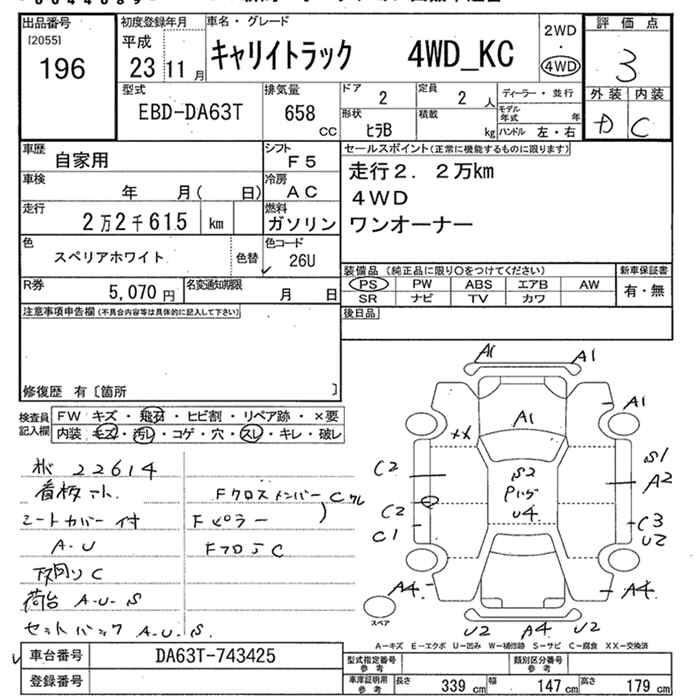 出品番号
[2055]
196
初度登録年月
平成
23 11月
車名・グレード
キャリイトラック 4WD_KC
2WD
・
4WD
評価点
3
外装 内装
D C
型式
EBD-DA63T
排気量
658
CC
ドア
2
定員
2 人
ディーラー・並行
モデル年式 年
形状
ﾋﾗB
積載
kg
ハンドル 左・右
車歴
自家用
シフト
F5
車検
年 月( 日)
冷房
AC
走行
2万2千615 km
燃料
ガソリン
色
スペリアホワイト
色替
色コード
26U
R券
5,070 円
名変通知期限
月 日
セールスポイント(正常に機能するものに限ります)
走行2.2万km
4WD
ワンオーナー
装備品 (純正品に限り○をつけてください)
PS PW ABS エアB AW
SR ナビ TV カワ
新車保証書
有・無
後日品
注意事項申告欄 (不具合内容等は具体的に記入して下さい)
修復歴 有〔箇所 〕
検査員記入欄
FW キズ・飛石・ヒビ割・リペア跡・×要
内装 キズ・汚レ・コゲ・穴・スレ・キレ・破レ
22614
シートカバー付
A.U
下廻りC
荷台 A.U.S
セットバック A.U.S.
Fクロスメンバー
Fピラー
FフロアC
A1
A1
A1
A1
XX
C2
C2
C1
S2
U4
S1
A2
C3
U2
A4
A4
U2
A4
U2
スペア
A－キズ E－エクボ U－凹み W－補修跡 S－サビ C－腐食 XX－交換済
車台番号
DA63T-743425
登録番号
型式指定番号
参考
類別区分番号
参考
車庫証明用
参考
長さ 339 cm
幅 147 cm
高さ 179 cm